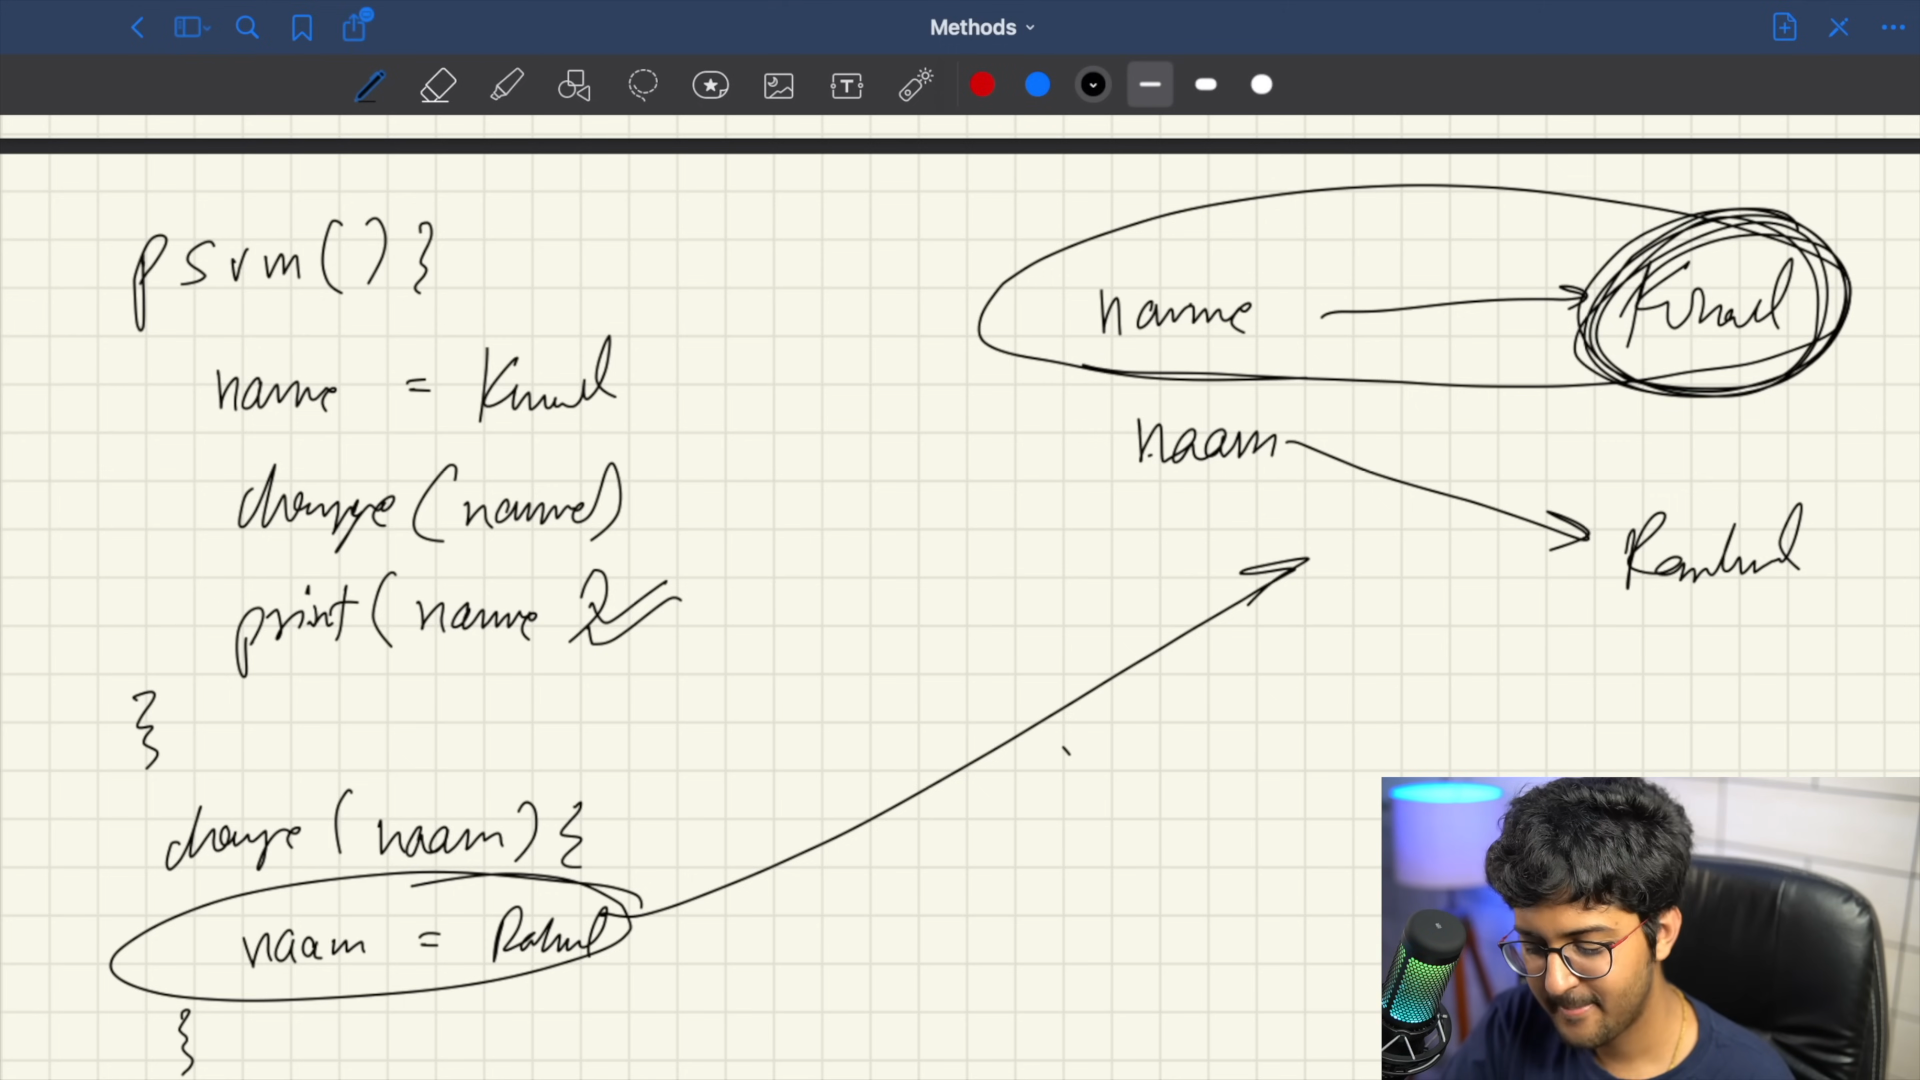 Methods
psvm() }
name = Kunal
change (name)
print( name )
}
change (naam) {
naam = Rahul
}
name → Kunal
naam → Rahul